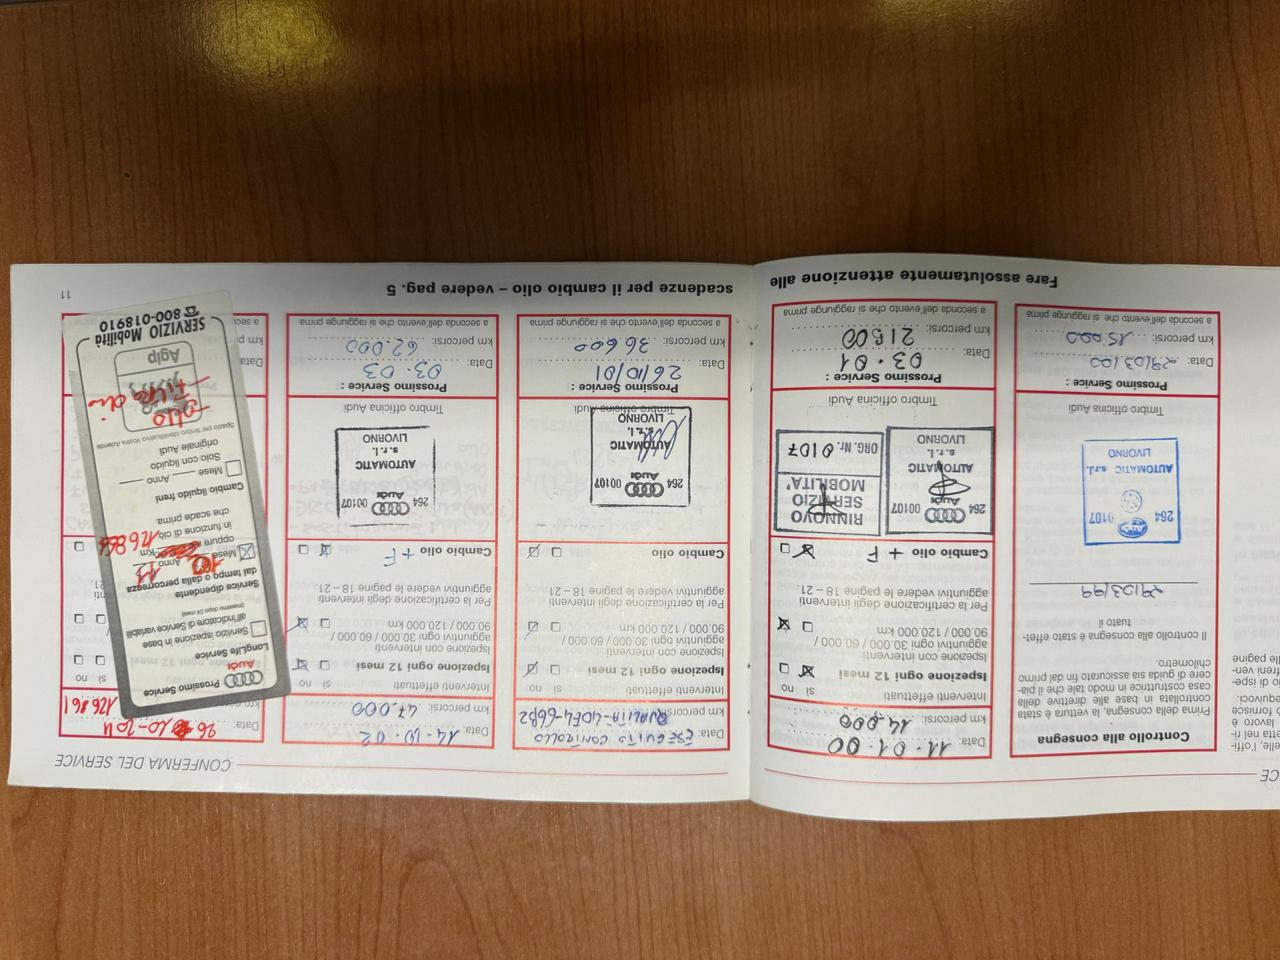 CE
Controllo alla consegna
Prima della consegna, la vettura è stata
controllata in base alle direttive della
casa costruttrice in modo tale che il pia-
cere di guida sia assicurato fin dal primo
chilometro.
Il controllo alla consegna è stato effet-
tuato il
29/03/99
264 0107
AUTOMATIC s.r.l.
LIVORNO
Timbro officina Audi
Prossimo Service :
Data: 29/03/00
km percorsi: 15.000
a seconda dell'evento che si raggiunge prima
Data: 11.01.00
km percorsi: 14.000
Interventi effettuati sì no
Ispezione ogni 12 mesi
Ispezione con interventi
aggiuntivi ogni 30.000 / 60.000 /
90.000 / 120.000 km
Per la certificazione degli interventi
aggiuntivi vedere le pagine 18 – 21.
Cambio olio + F
264 Audi 00107
AUTOMATIC
s.r.l.
LIVORNO
RINNOVO
SERVIZIO
MOBILITA'
ORG. Nr. 0107
Timbro officina Audi
Prossimo Service :
Data: 03.01
km percorsi: 21500
a seconda dell'evento che si raggiunge prima
Fare assolutamente attenzione alle
CONFERMA DEL SERVICE
Data: ESEGUITO CONTROLLO
km percorsi: QUALITÀ
Interventi effettuati sì no
Ispezione ogni 12 mesi
Ispezione con interventi
aggiuntivi ogni 30.000 / 60.000 /
90.000 / 120.000 km
Per la certificazione degli interventi
aggiuntivi vedere le pagine 18 – 21.
Cambio olio
264 Audi 00107
AUTOMATIC
s.r.l.
LIVORNO
Timbro officina Audi
Prossimo Service :
Data: 26/10/01
km percorsi: 36600
a seconda dell'evento che si raggiunge prima
Data: 14.10.02
km percorsi: 47.000
Interventi effettuati sì no
Ispezione ogni 12 mesi
Ispezione con interventi
aggiuntivi ogni 30.000 / 60.000 /
90.000 / 120.000 km
Per la certificazione degli interventi
aggiuntivi vedere le pagine 18 – 21.
Cambio olio + F
264 Audi 00107
AUTOMATIC
s.r.l.
LIVORNO
Timbro officina Audi
Prossimo Service :
Data: 03.03
km percorsi: 62.000
a seconda dell'evento che si raggiunge prima
Data: 26-10-2011
km 176861
sì no
Prossimo Service
Audi
LongLife Service
Servizio Ispezione in base
all'indicatore di Service variabili
(massimo dopo 24 mesi)
Service dipendente
dal tempo o dalla percorrenza
Mese Anno
oppure a km
in funzione di ciò
che scade prima
Cambio liquido freni
Mese Anno
Solo con liquido
originale Audi
Spazio per timbro identificativo Vostra Azienda
olio
filtro olio
Agip
SERVIZIO Mobilità
☎ 800-018910
scadenze per il cambio olio – vedere pag. 5
11